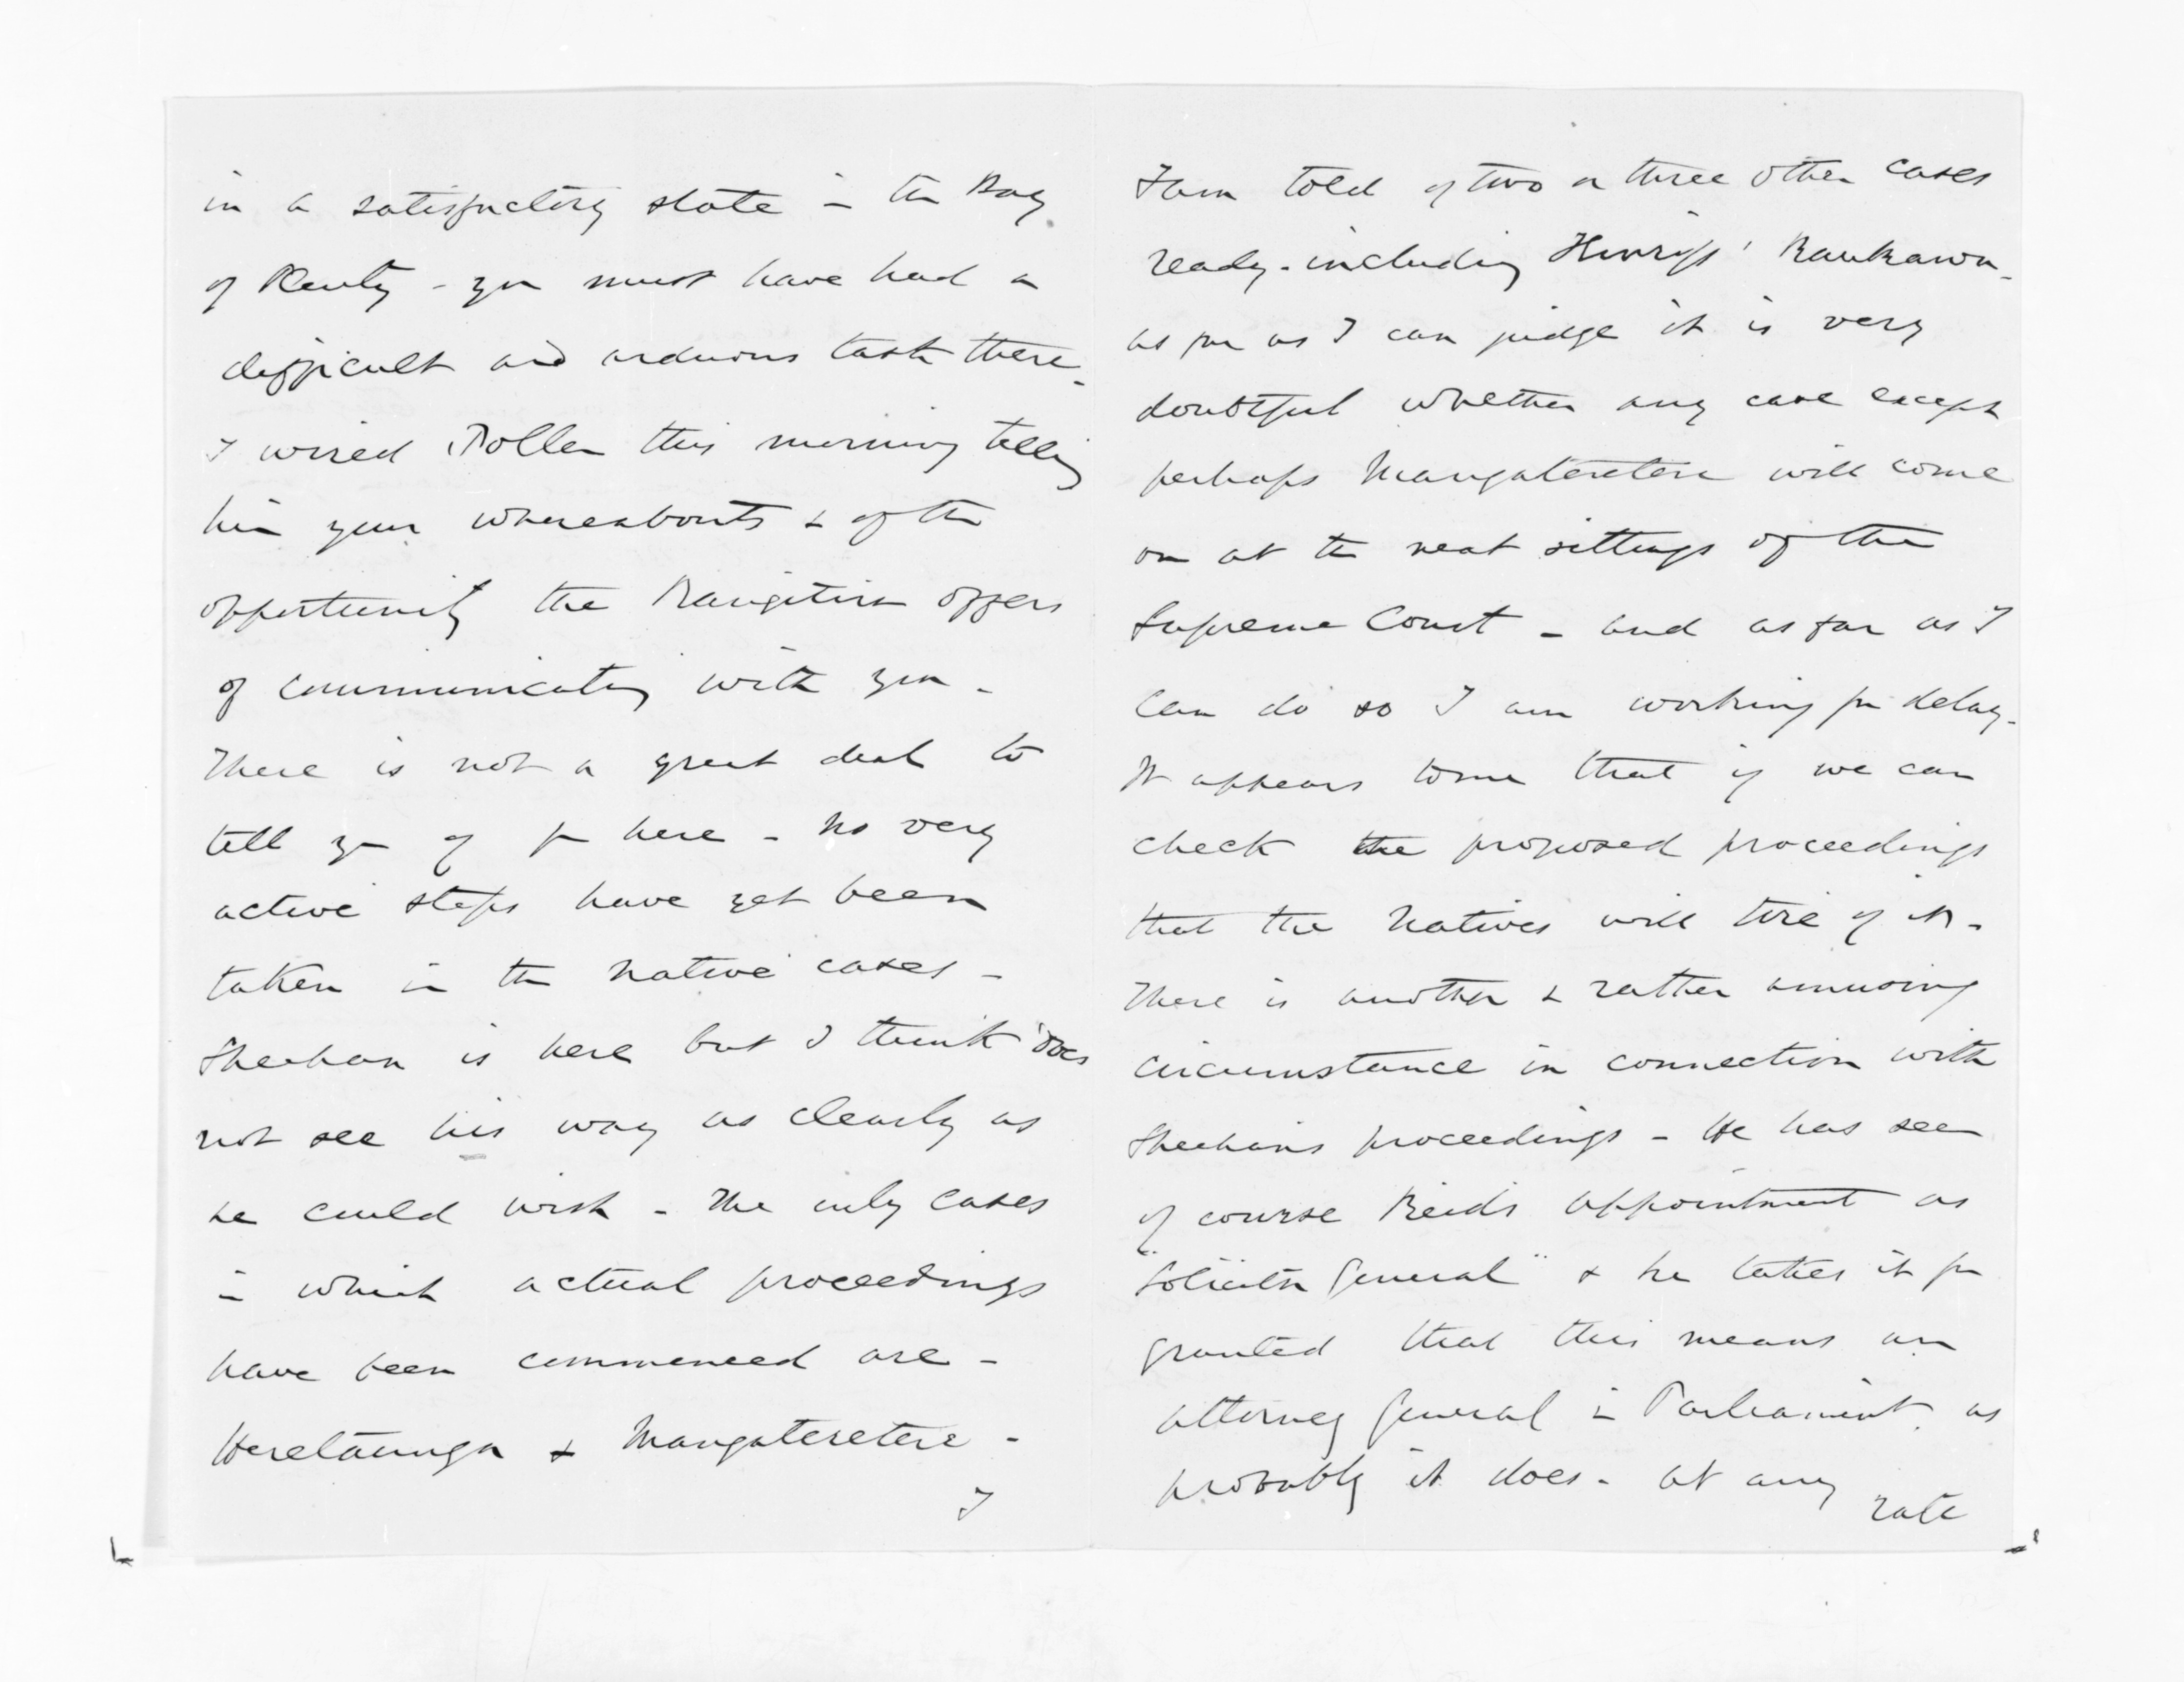 in a satisfactory state in the Bay
of Plenty - you must have had a
difficult and arduous task there -
I wired Pollen this morning telling
him your whereabouts & of the
opportunity the Rangitira offers
of communicating with you -
There is not a great deal to
tell you of fm here - No very
active steps have yet been
taken in the native cases -
Sheehan is here but I think does
not see his way as clearly as
he could wish - The only cases
in which actual proceedings
have been commenced are -
Heretaunga & Mangateretere -
I
I am told of two or three other cases
ready - including Raukawa -
as far as I can judge it is very
doubtful whether any case except
perhaps Mangateretere will come
on at the next sittings of the
Supreme Court - and as far as I
can do so I am working for delay -
It appears to me that if we can
check the proposed proceedings
that the Natives will tire of it -
There is another & rather amusing
circumstance in connection with
Sheehans proceedings - He has seen
of course Reids appointment as
"Solicitor General" & he takes it for
granted that this means an
attorney General in Parliament as
probably it does - at any
rate